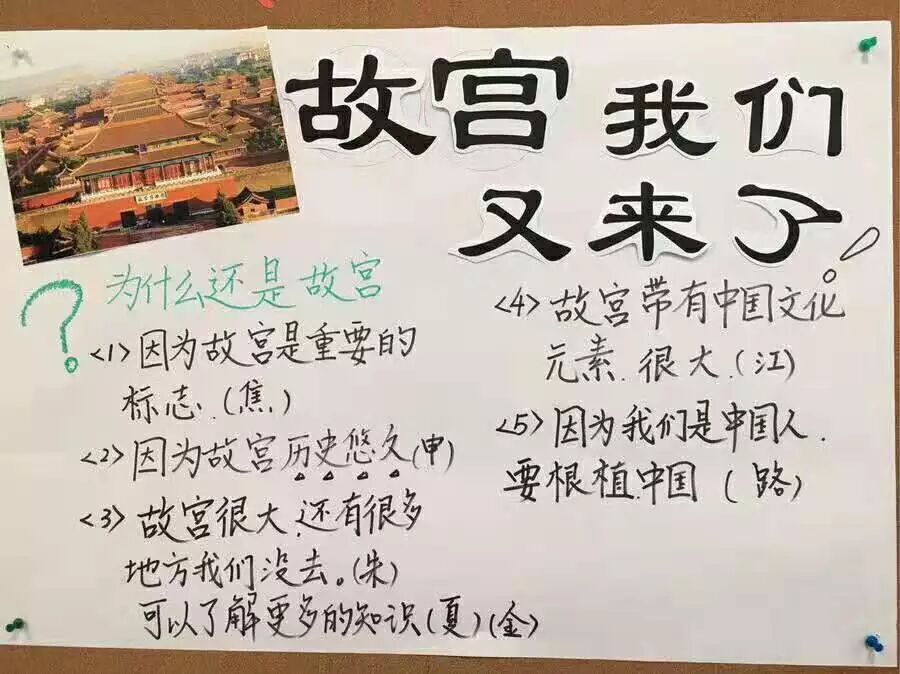 故宫 我们
又来了!
? 为什么还是故宫
<1>因为故宫是重要的
标志.(焦)
<2>因为故宫历史悠久(申)
<3>故宫很大,还有很多
地方我们没去。(朱)
可以了解更多的知识(夏)(金)
<4>故宫带有中国文化
元素.很大.(江)
<5>因为我们是中国人.
要根植.中国(路)